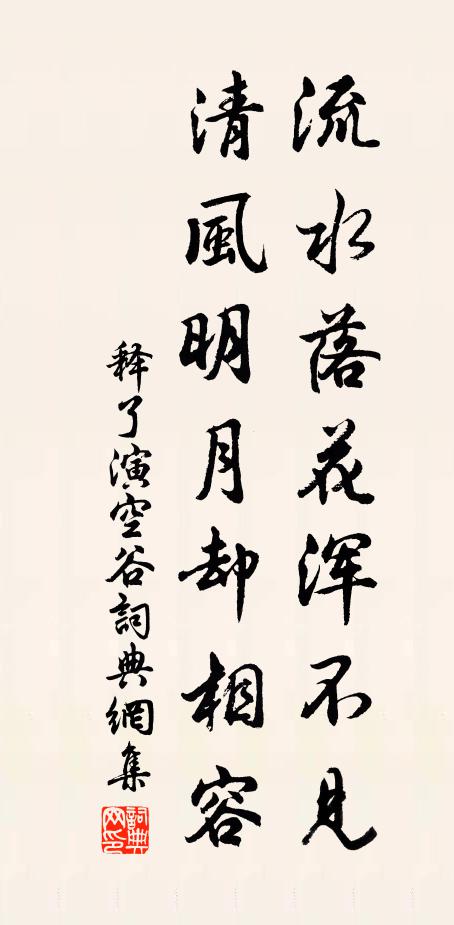 流水落花浑不见
清風明月却相容
释了演空谷詞典網集
詞典网印